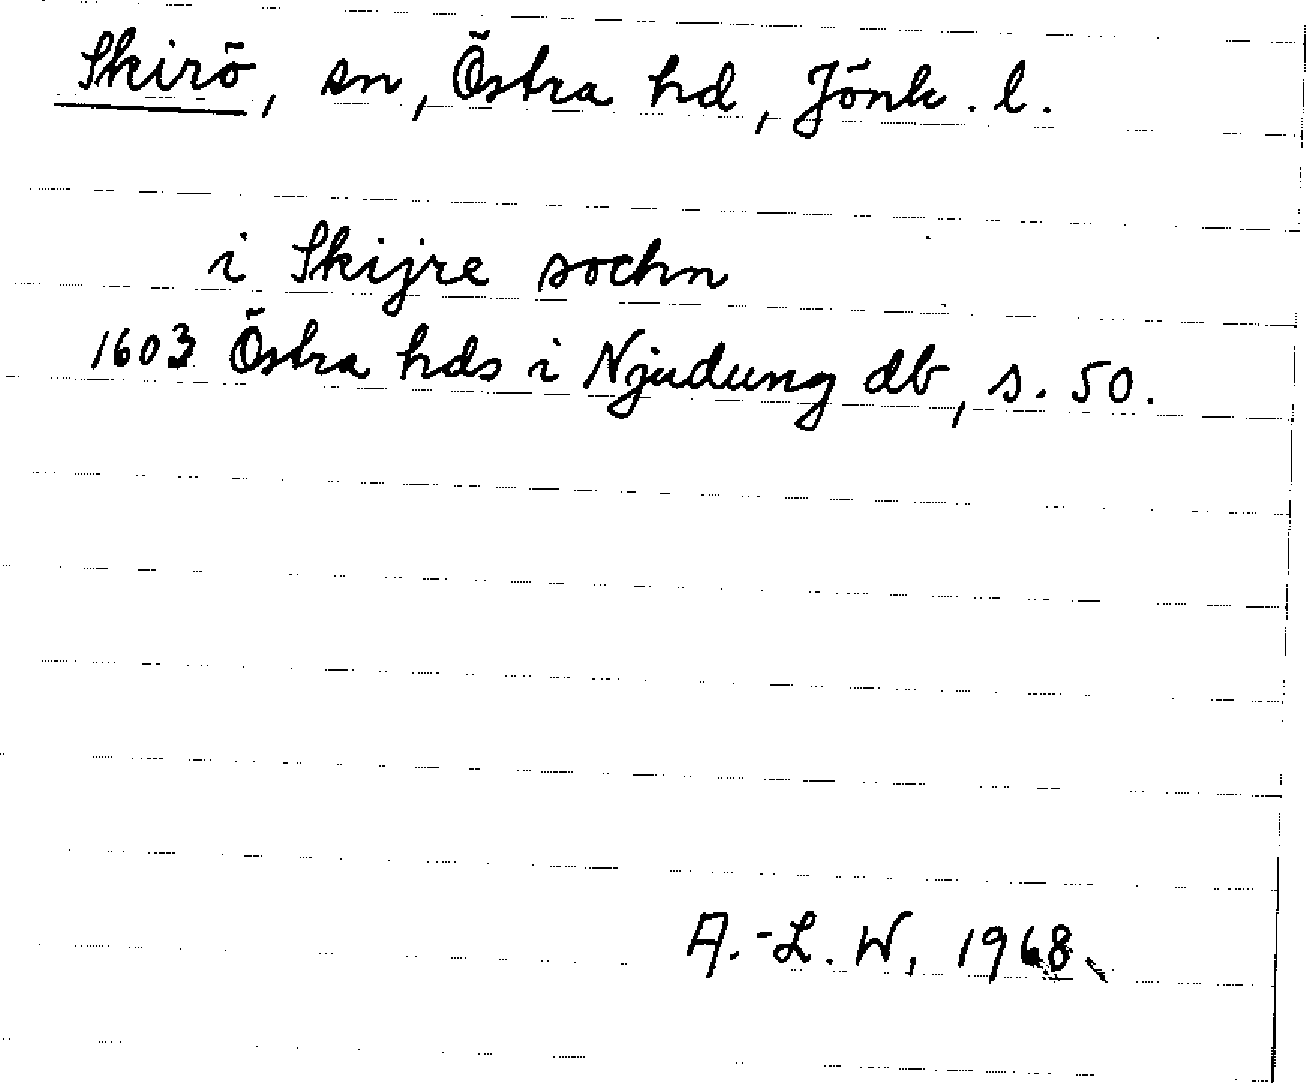 Skirö, sn, Östra hd, Jönk. l.
i Skijre sochn
1603 Östra hds i Njudung db, s. 50.
A.-L. W, 1968.